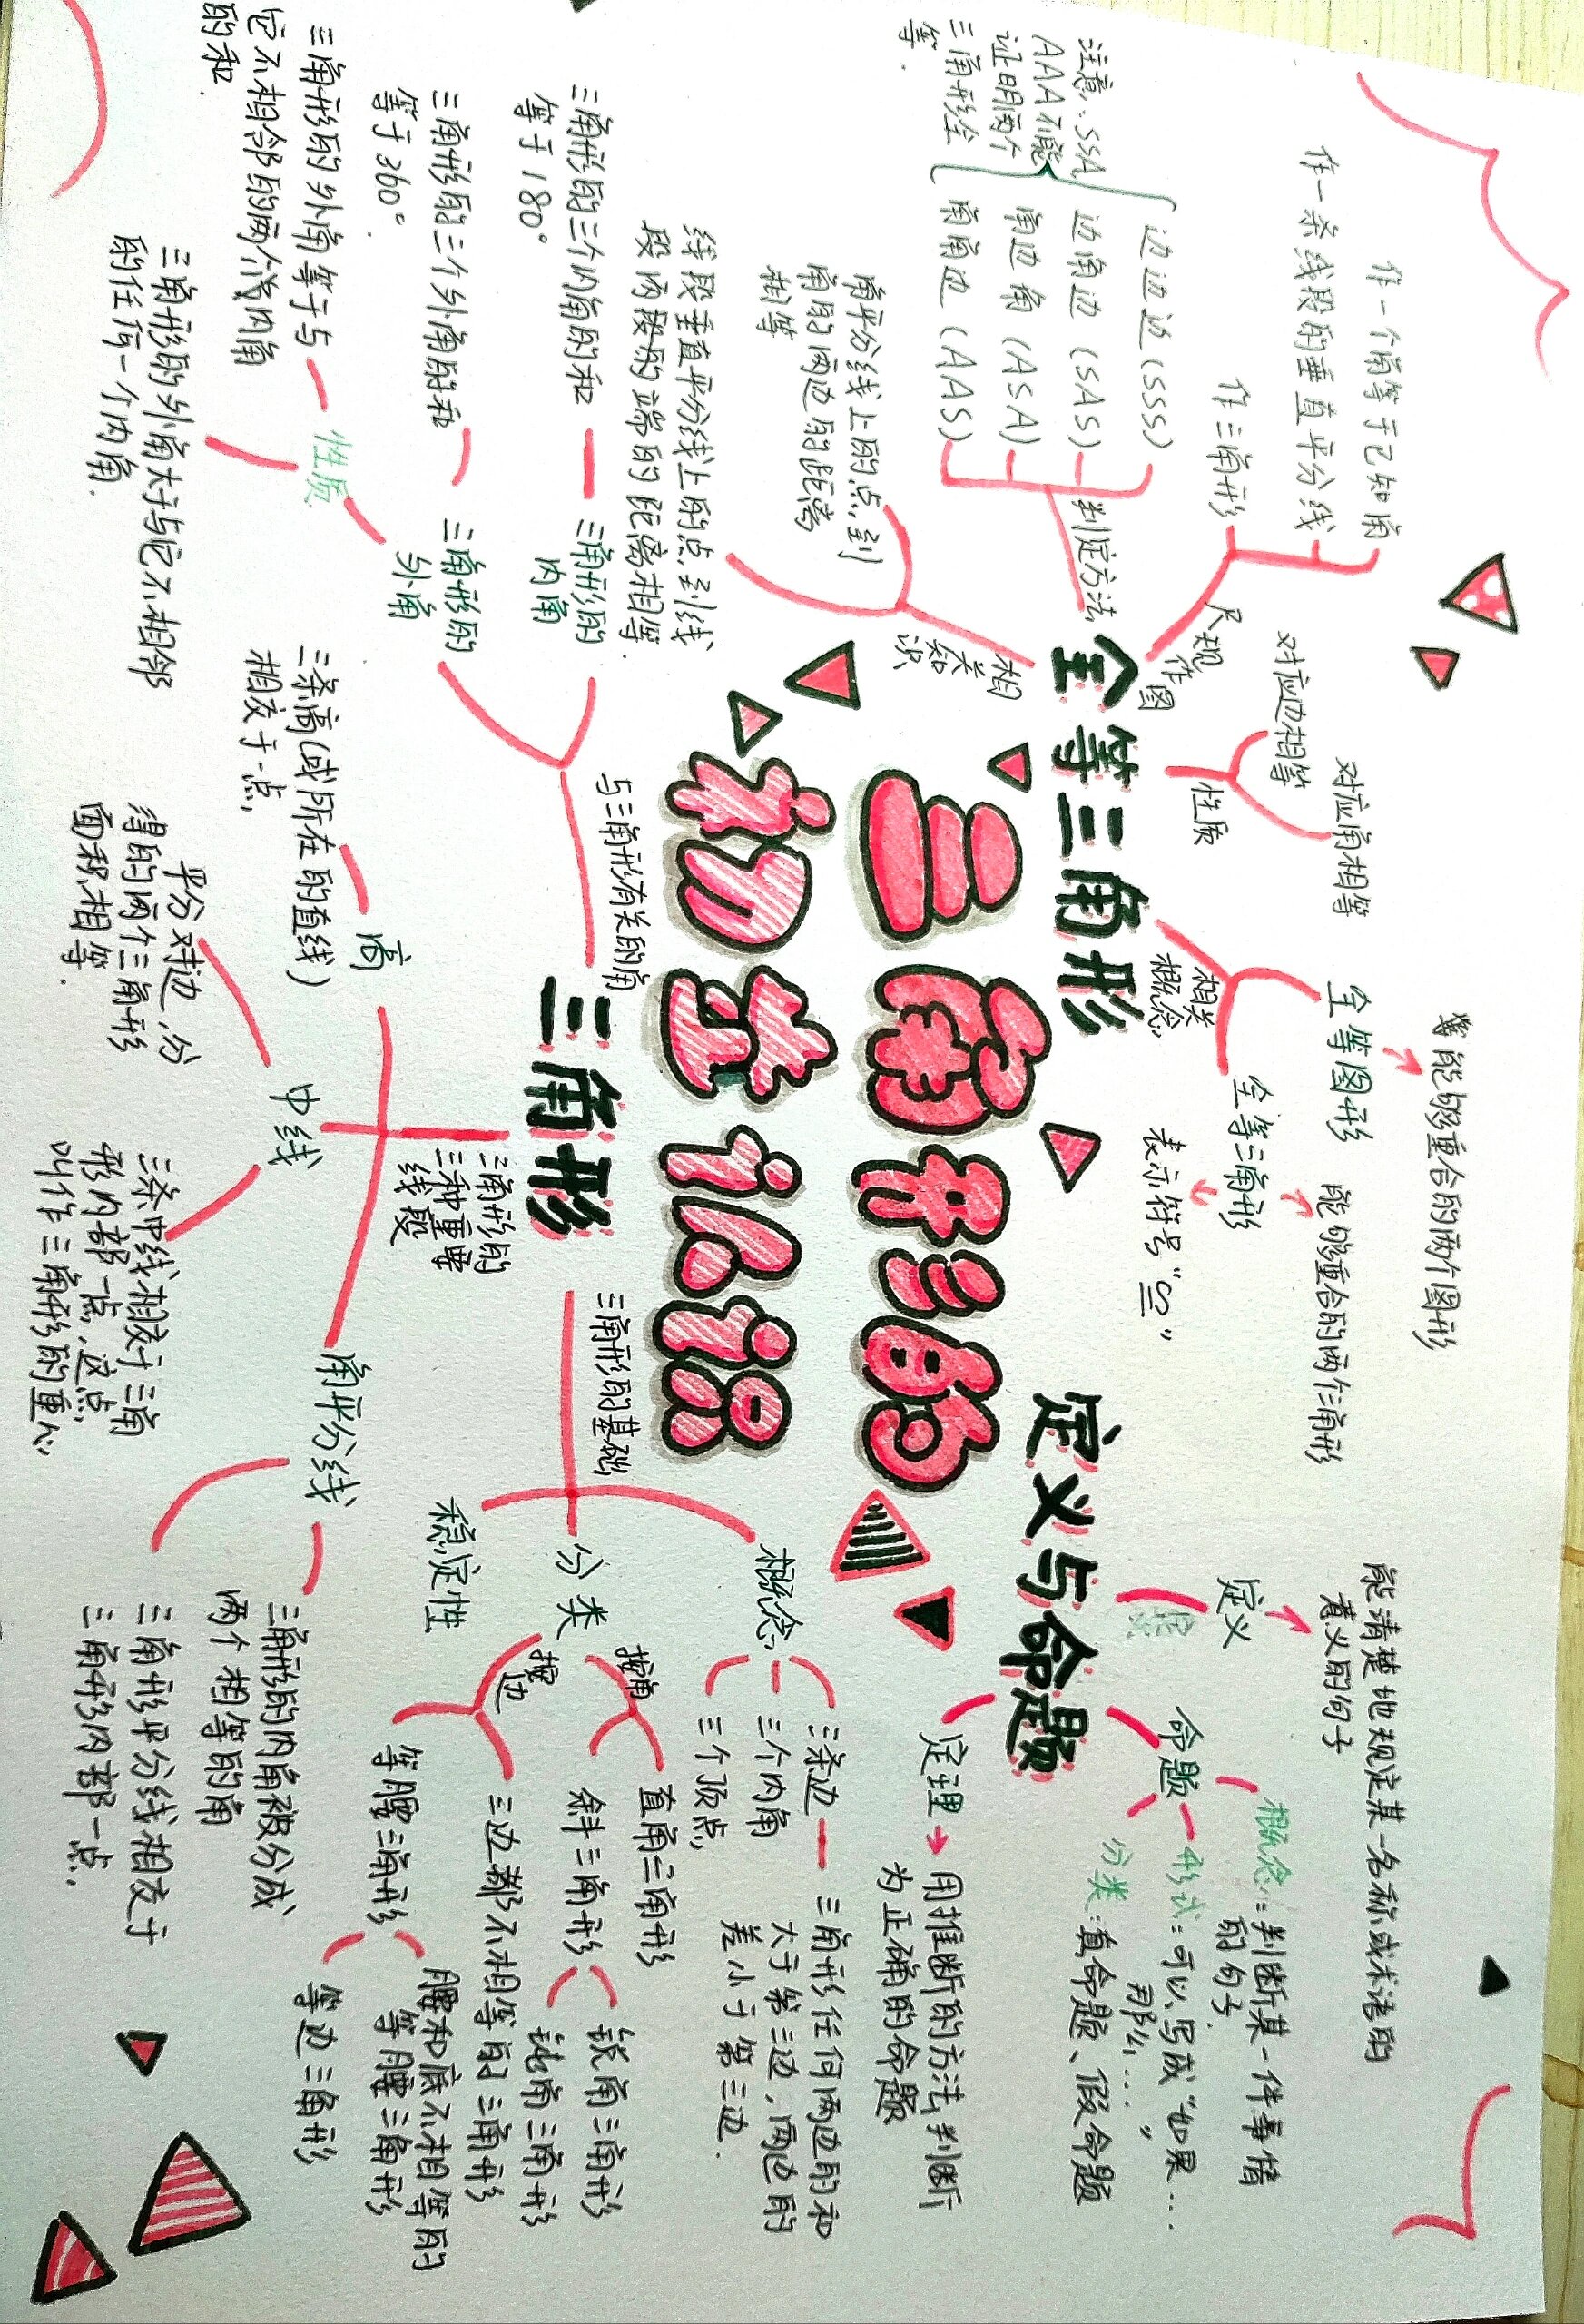 三角形的
初步认识
全等三角形
尺规
作图
作一个角等于已知角
作一条线段的垂直平分线
作三角形
判定方法
边边边(SSS)
边角边(SAS)
角边角(ASA)
角角边(AAS)
注意:SSA,
AAA不能
证明两个
三角形全
等.
相
关
知
识
角平分线上的点到
角的两边的距离
相等
线段垂直平分线上的点到线
段两段的端的距离相等.
性质
对应边相等
对应角相等
相关
概念
全等图形
能够重合的两个图形
全等三角形
能够重合的两个三角形
表示符号“≌”
定义与命题
定义
能清楚地规定某一名称或术语的
意义的句子
命题
概念:判断某一件事情
的句子.
形式:可以写成“如果…
那么…”
分类:真命题、假命题
定理
用推断的方法判断
为正确的命题
三角形
与三角形有关的角
三角形的
内角
三角形的三个内角的和
等于180°
三角形的
外角
三角形的三个外角的和
等于360°.
性质
三角形的外角等于与
它不相邻的两个内角
的和.
三角形的外角大于与它不相邻
的任何一个内角.
三角形的
三种重要
线段
高
三条高(或所在的直线)
相交于一点
中线
平分对边,分
得的两个三角形
面积相等.
三条中线相交于三角
形内部一点,这点
叫作三角形的重心
角平分线
三角形的内角被分成
两个相等的角
三角形平分线相交于
三角形内部一点.
三角形的基础
概念
三条边
三个内角
三个顶点
三角形任何两边的和
大于第三边,两边的
差小于第三边.
分类
按角
直角三角形
斜三角形
锐角三角形
钝角三角形
按
边
三边都不相等的三角形
等腰三角形
腰和底不相等的
等腰三角形
等边三角形
稳定性